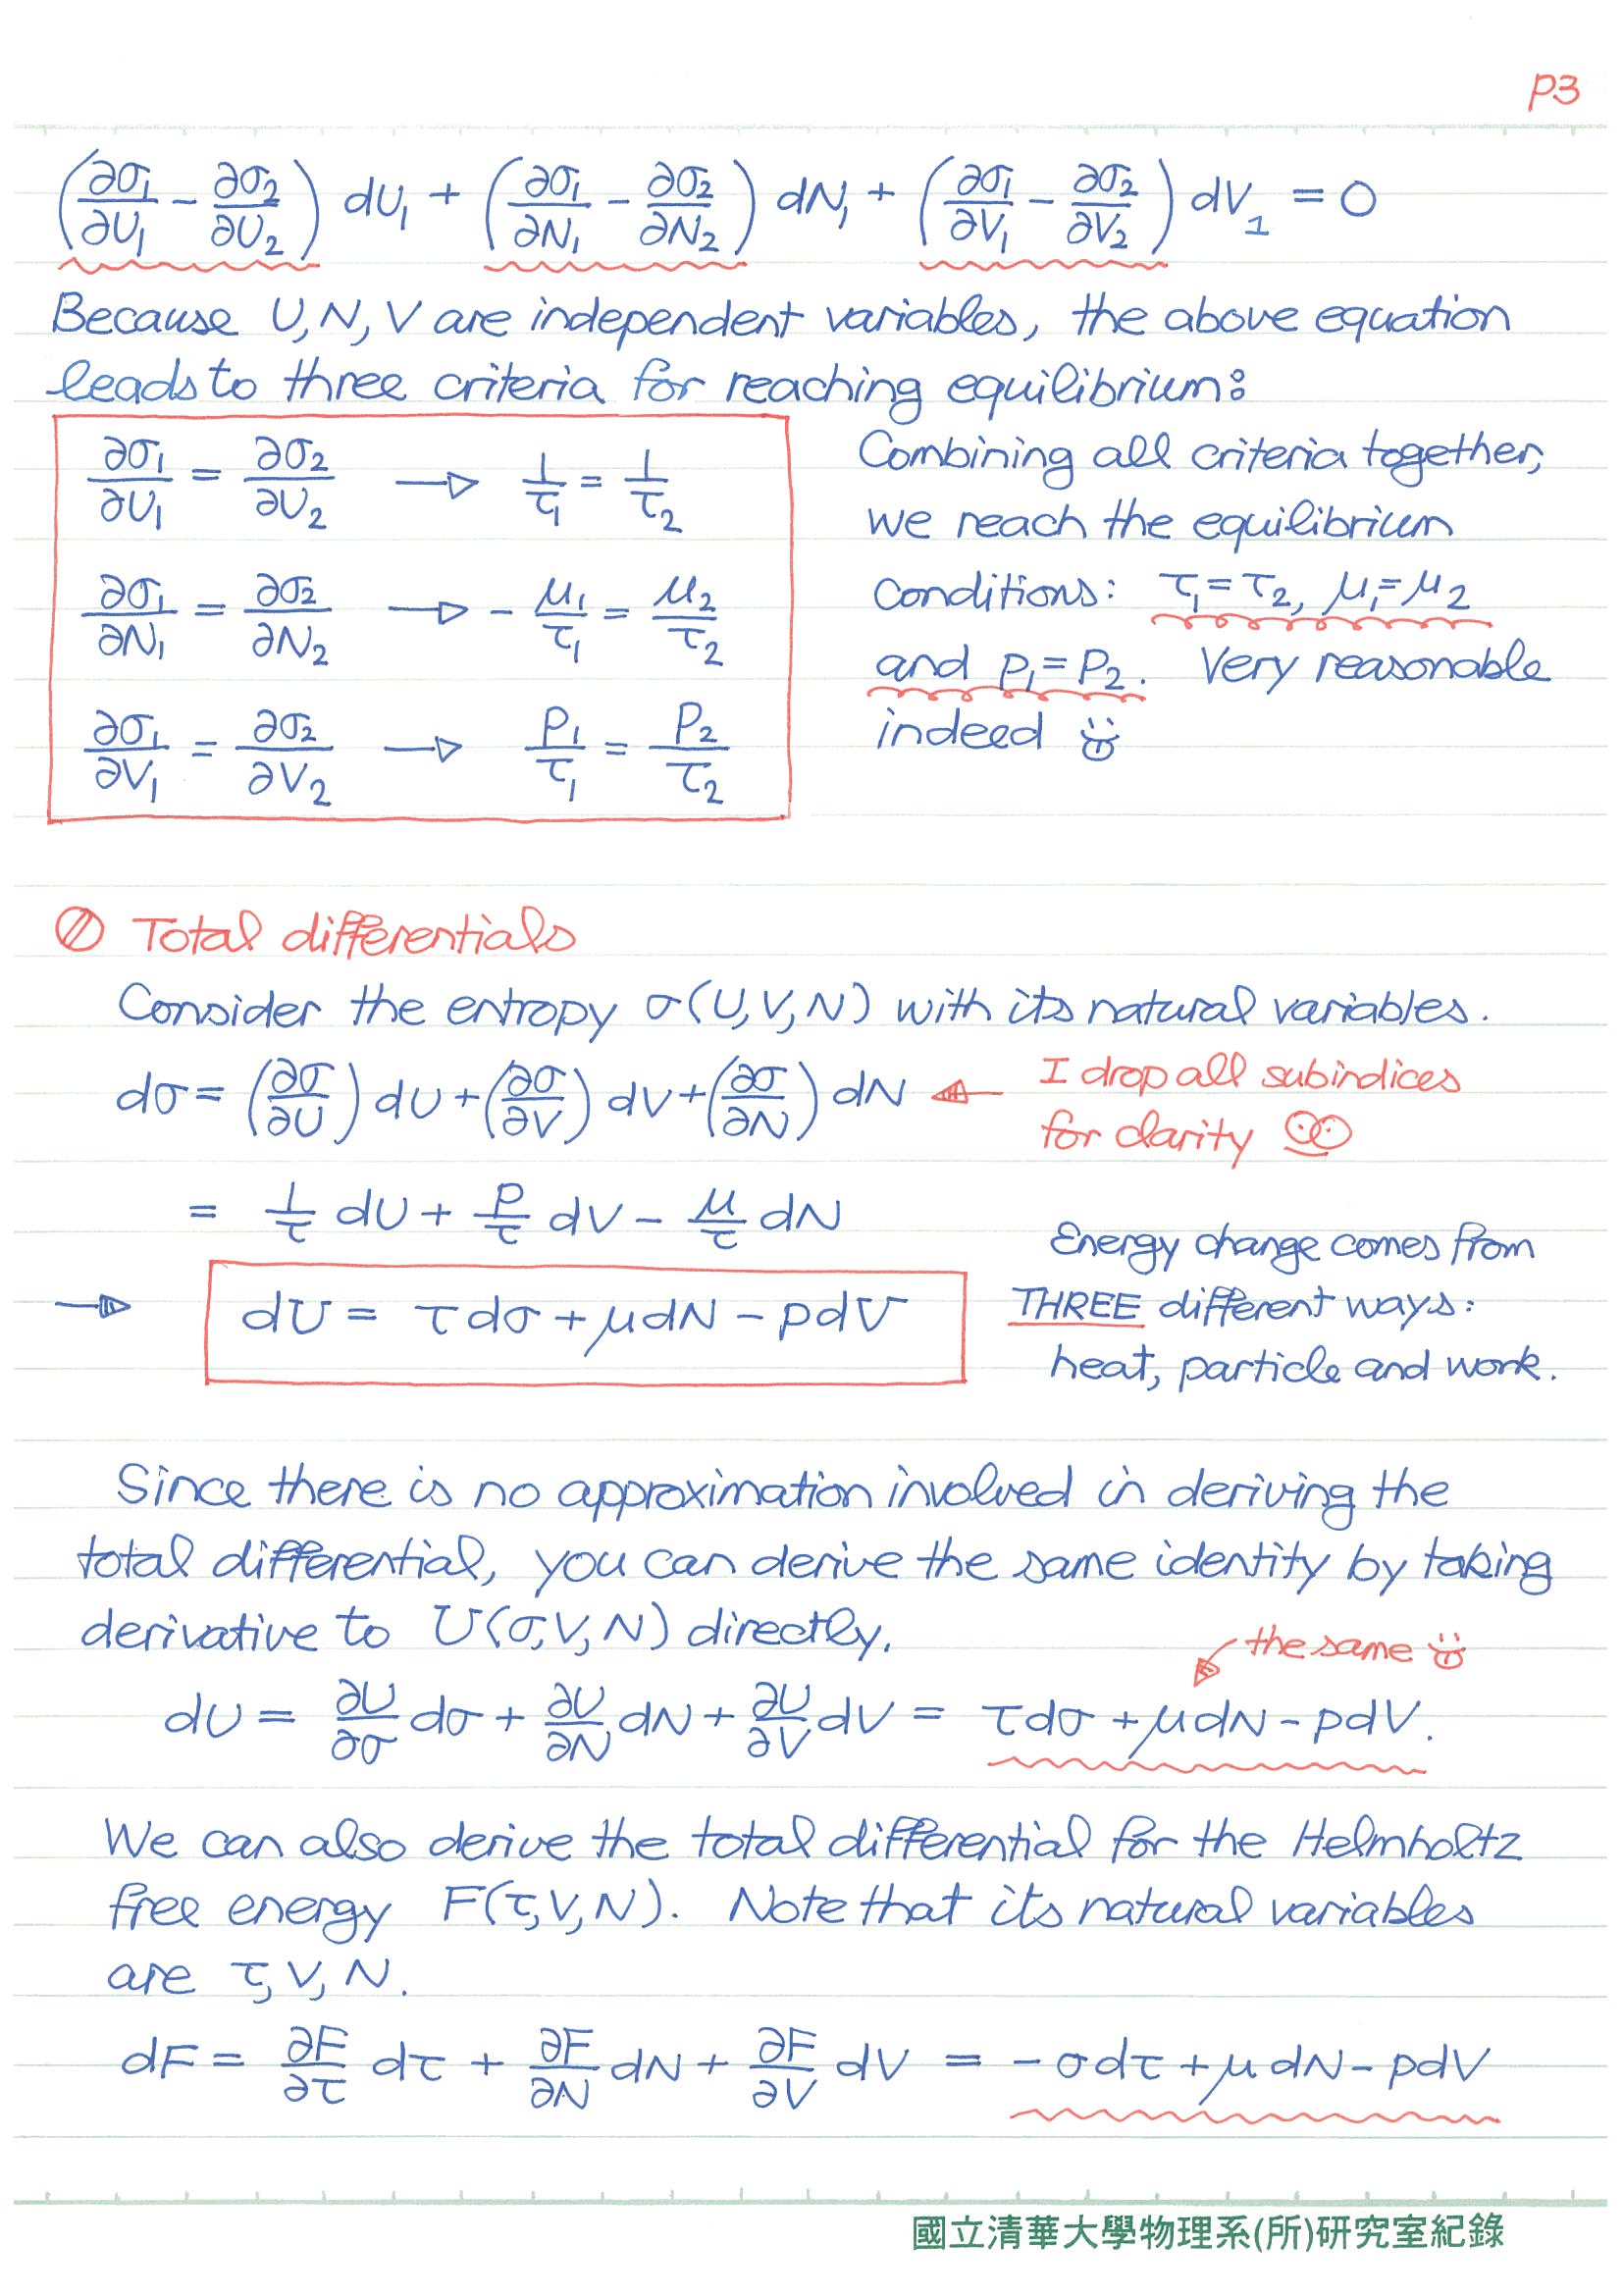 P3
(∂σ₁/∂U₁ − ∂σ₂/∂U₂) dU₁ + (∂σ₁/∂N₁ − ∂σ₂/∂N₂) dN₁ + (∂σ₁/∂V₁ − ∂σ₂/∂V₂) dV₁ = 0
Because U, N, V are independent variables, the above equation
leads to three criteria for reaching equilibrium:
∂σ₁/∂U₁ = ∂σ₂/∂U₂ → 1/τ₁ = 1/τ₂
∂σ₁/∂N₁ = ∂σ₂/∂N₂ → − μ₁/τ₁ = μ₂/τ₂
∂σ₁/∂V₁ = ∂σ₂/∂V₂ → P₁/τ₁ = P₂/τ₂
Combining all criteria together,
we reach the equilibrium
conditions: τ₁=τ₂, μ₁=μ₂
and p₁=p₂. Very reasonable
indeed
Total differentials
Consider the entropy σ(U,V,N) with its natural variables.
dσ = (∂σ/∂U) dU + (∂σ/∂V) dV + (∂σ/∂N) dN
I drop all subindices
for clarity
= 1/τ dU + P/τ dV − μ/τ dN
→ dU = τdσ + μdN − pdV
Energy change comes from
THREE different ways:
heat, particle and work.
Since there is no approximation involved in deriving the
total differential, you can derive the same identity by taking
derivative to U(σ,V,N) directly.
the same
dU = ∂U/∂σ dσ + ∂U/∂N dN + ∂U/∂V dV = τdσ + μdN − pdV.
We can also derive the total differential for the Helmholtz
free energy F(τ,V,N). Note that its natural variables
are τ, V, N.
dF = ∂F/∂τ dτ + ∂F/∂N dN + ∂F/∂V dV = −σdτ + μdN − pdV
國立清華大學物理系(所)研究室紀錄